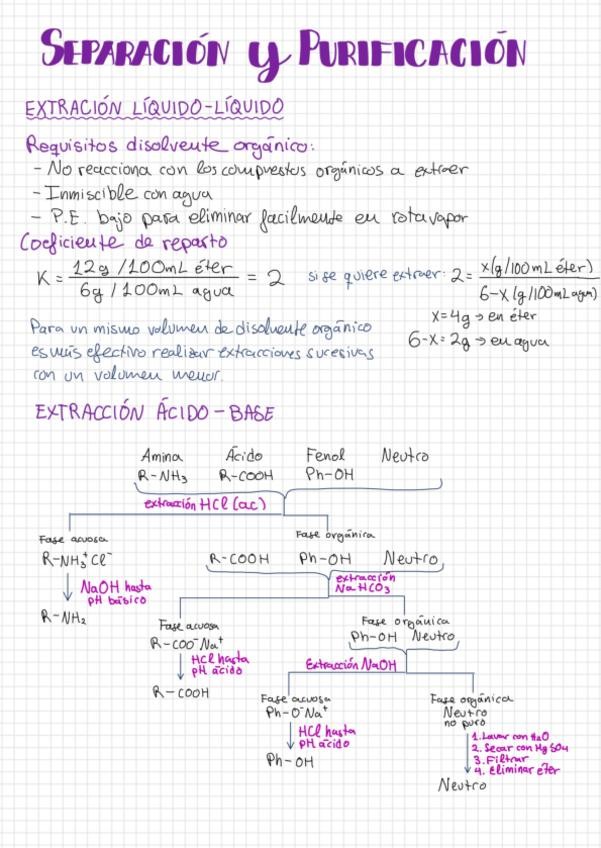 SEPARACIÓN y PURIFICACIÓN
EXTRACIÓN LÍQUIDO-LÍQUIDO
Requisitos disolvente orgánico:
- No reacciona con los compuestos orgánicos a extraer
- Inmiscible con agua
- P.E. bajo para eliminar facilmente en rotavapor
Coeficiente de reparto
K = 12g /100mL éter / 6g / 100mL agua = 2 si se quiere extraer: 2 = x(g/100mL éter) / 6-x (g/100mL agua)
x=4g → en éter
6-x=2g → en agua
Para un mismo volumen de disolvente orgánico
es más efectivo realizar extracciones sucesivas
con un volumen menor.
EXTRACCIÓN ÁCIDO-BASE
Amina Ácido Fenol Neutro
R-NH3 R-COOH Ph-OH
extracción HCl (ac)
Fase acuosa Fase orgánica
R-NH3+Cl- R-COOH Ph-OH Neutro
extracción
NaHCO3
NaOH hasta
pH básico
R-NH2
Fase acuosa Fase orgánica
R-COO-Na+ Ph-OH Neutro
HCl hasta
pH ácido
Extracción NaOH
R-COOH
Fase acuosa Fase orgánica
Ph-O-Na+ Neutro
no puro
HCl hasta
pH ácido
1. Lavar con H2O
2. Secar con MgSO4
3. Filtrar
4. Eliminar éter
Ph-OH
Neutro